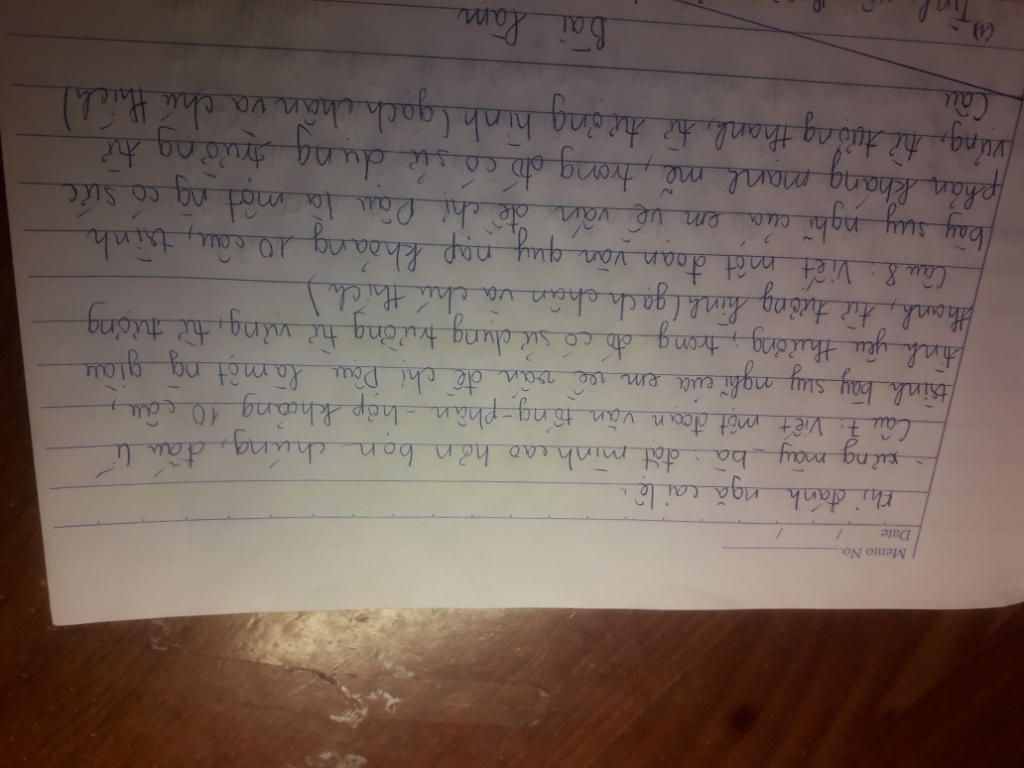 Memo No.
Date / /
khi đánh ngã cai lệ.
xưng mày - bà: đặt mình cao hơn bọn chúng, đấu lí
Câu 7: Viết một đoạn văn tổng - phân - hợp khoảng 10 câu,
trình bày suy nghĩ của em về vấn đề chị Dậu là một ng giàu
tình yêu thương, trong đó có sử dụng trường từ vựng, từ tượng
thanh, từ tượng hình (gạch chân và chú thích)
Câu 8: Viết một đoạn văn quy nạp khoảng 10 câu, trình
bày suy nghĩ của em về vấn đề chị Dậu là một ng có sức
phản kháng mạnh mẽ, trong đó có sử dụng trường từ
vựng, từ tượng thanh, từ tượng hình (gạch chân và chú thích)
Câu
Bài làm
Tình